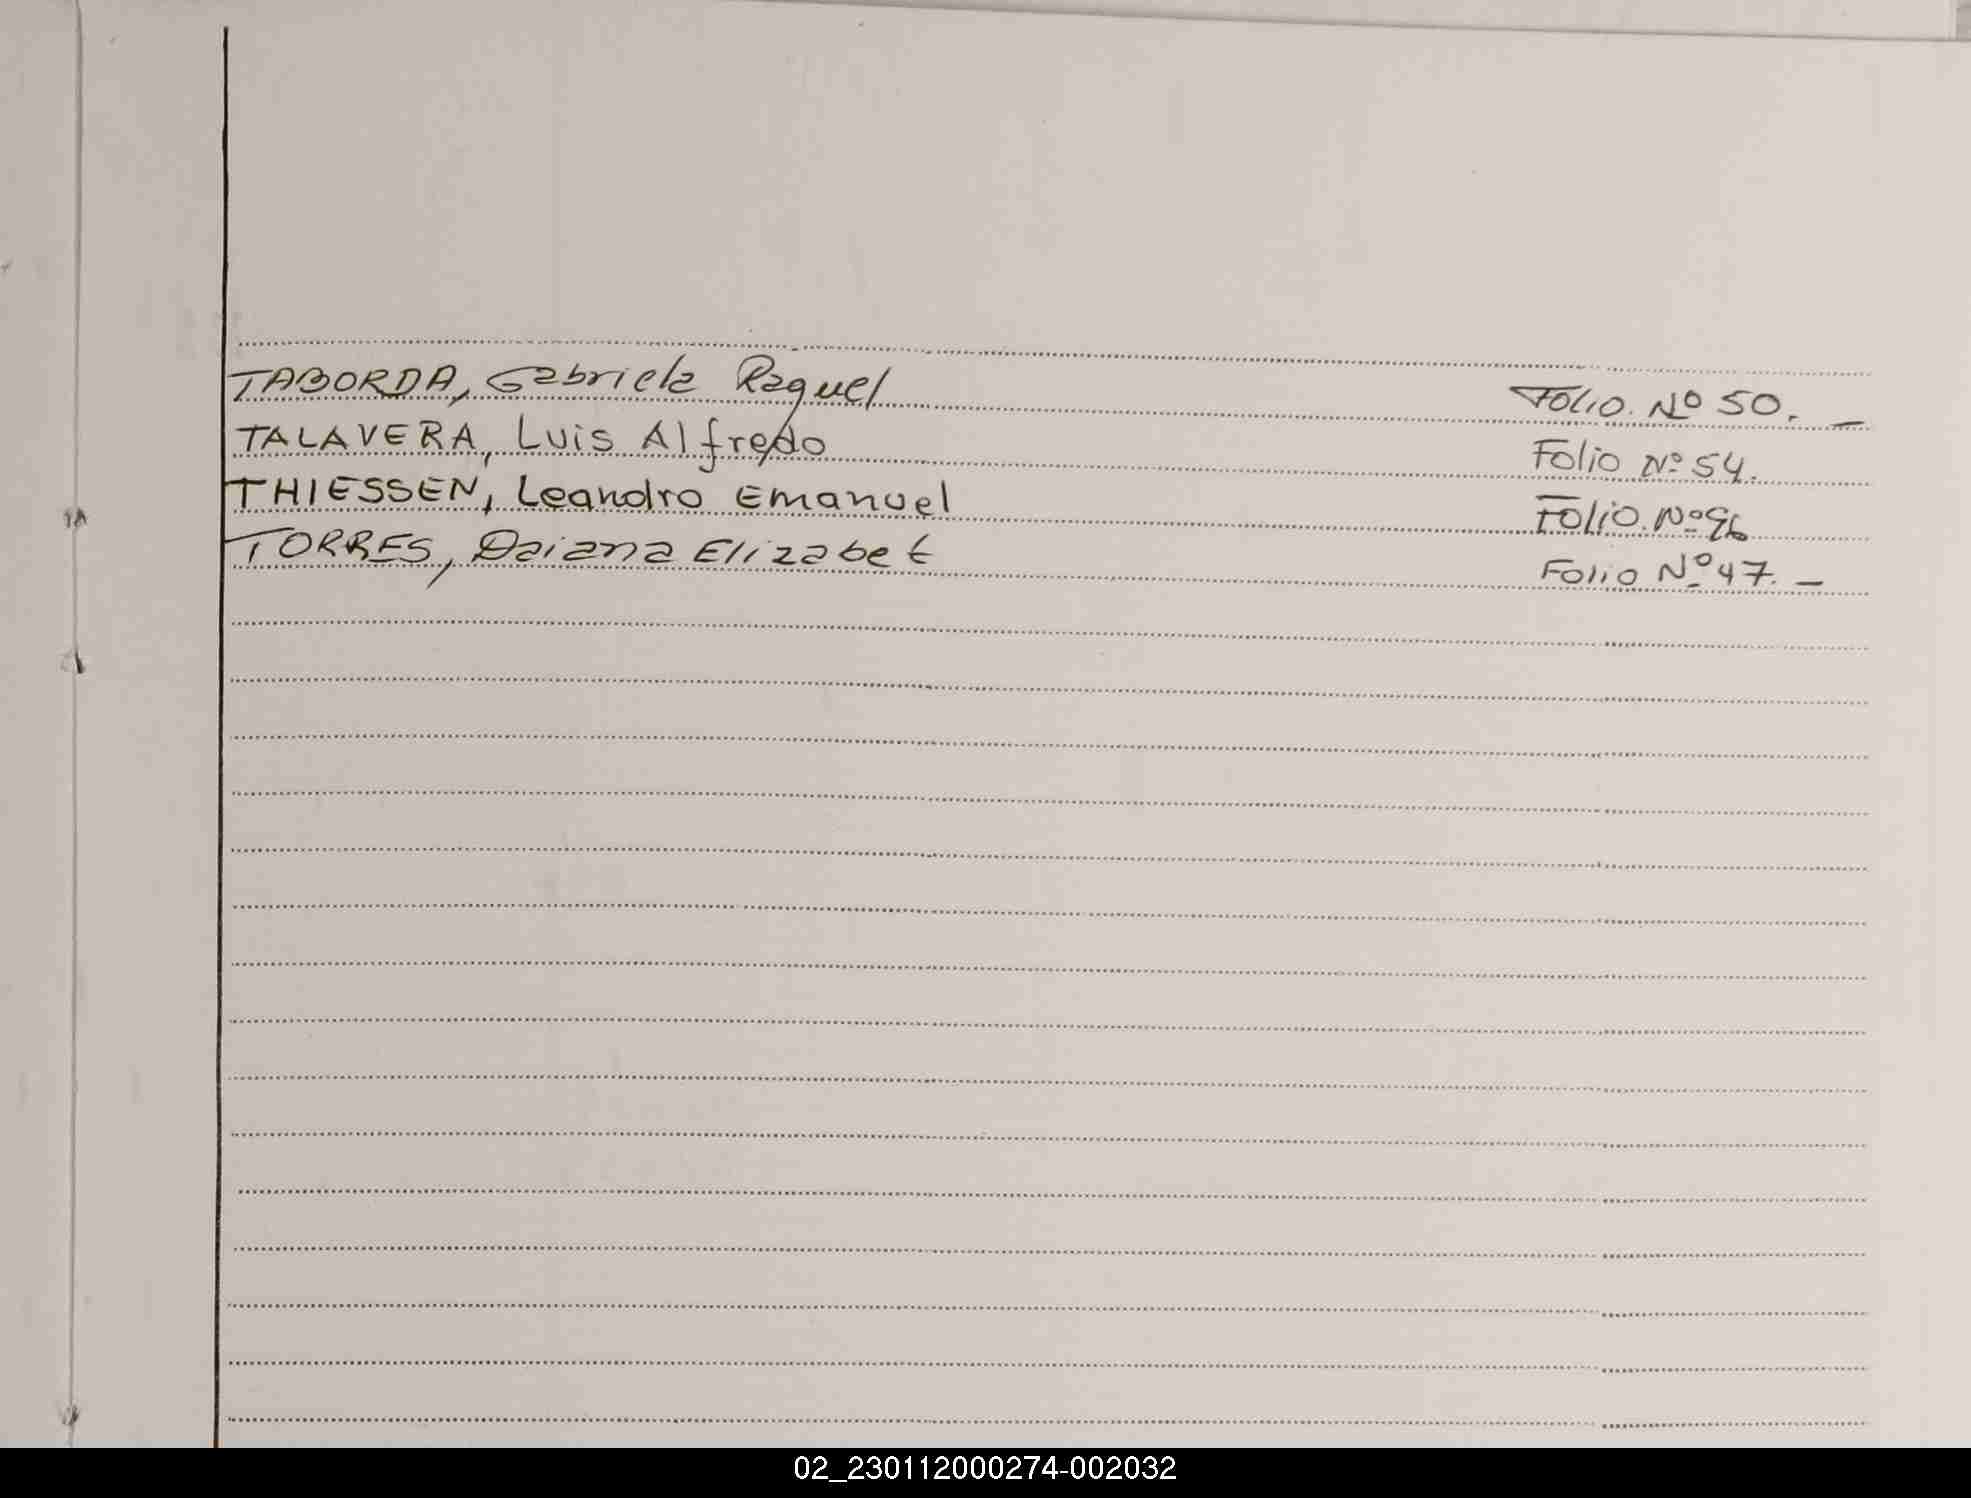 TABORDA, Gabriela Raquel Folio. Nº 50. —
TALAVERA, Luis Alfredo Folio Nº 54.
THIESSEN, Leandro Emanuel Folio. Nº 96
TORRES, Daiana Elizabet Folio Nº 47. —
02_230112000274-002032